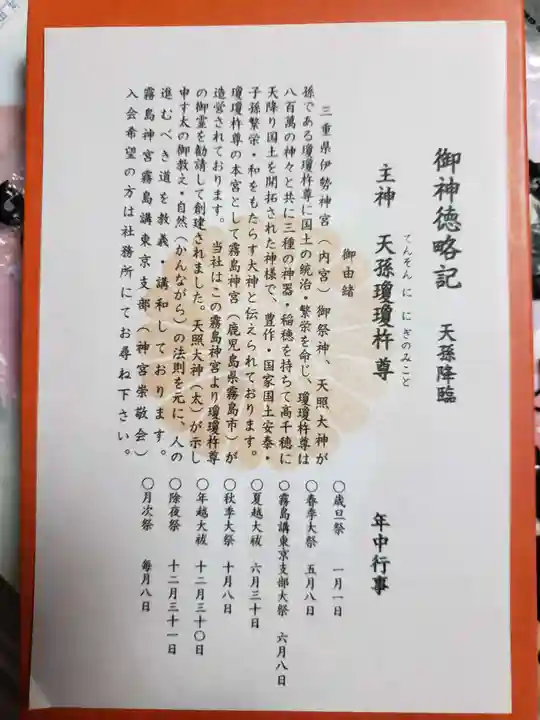 御神徳略記 天孫降臨
てんそんに にぎのみこと
主神 天孫瓊瓊杵尊
御由緒
三重県伊勢神宮（内宮）御祭神、天照大神が
孫である瓊瓊杵尊に国土の統治・繁栄を命じ、瓊瓊杵尊は
八百萬の神々と共に三種の神器・稲穂を持ちて高千穂に
天降り国土を開拓された神様で、豊作・国家国土安泰・
子孫繁栄・和をもたらす大神と伝えられております。
瓊瓊杵尊の本宮として霧島神宮（鹿児島県霧島市）が
造営されております。 当社はこの霧島神宮より瓊瓊杵尊
の御霊を勧請して創建されました。天照大神（太）が示し
申す太の御教え・自然（かんながら）の法則を元に、人の
進むべき道を教義・講和しております。
霧島神宮霧島講東京支部（神宮崇敬会）
入会希望の方は社務所にてお尋ね下さい。
年中行事
〇歳旦祭 一月一日
〇春季大祭 五月八日
〇霧島講東京支部大祭 六月八日
〇夏越大祓 六月三十日
〇秋季大祭 十月八日
〇年越大祓 十二月三十〇日
〇除夜祭 十二月三十一日
〇月次祭 毎月八日